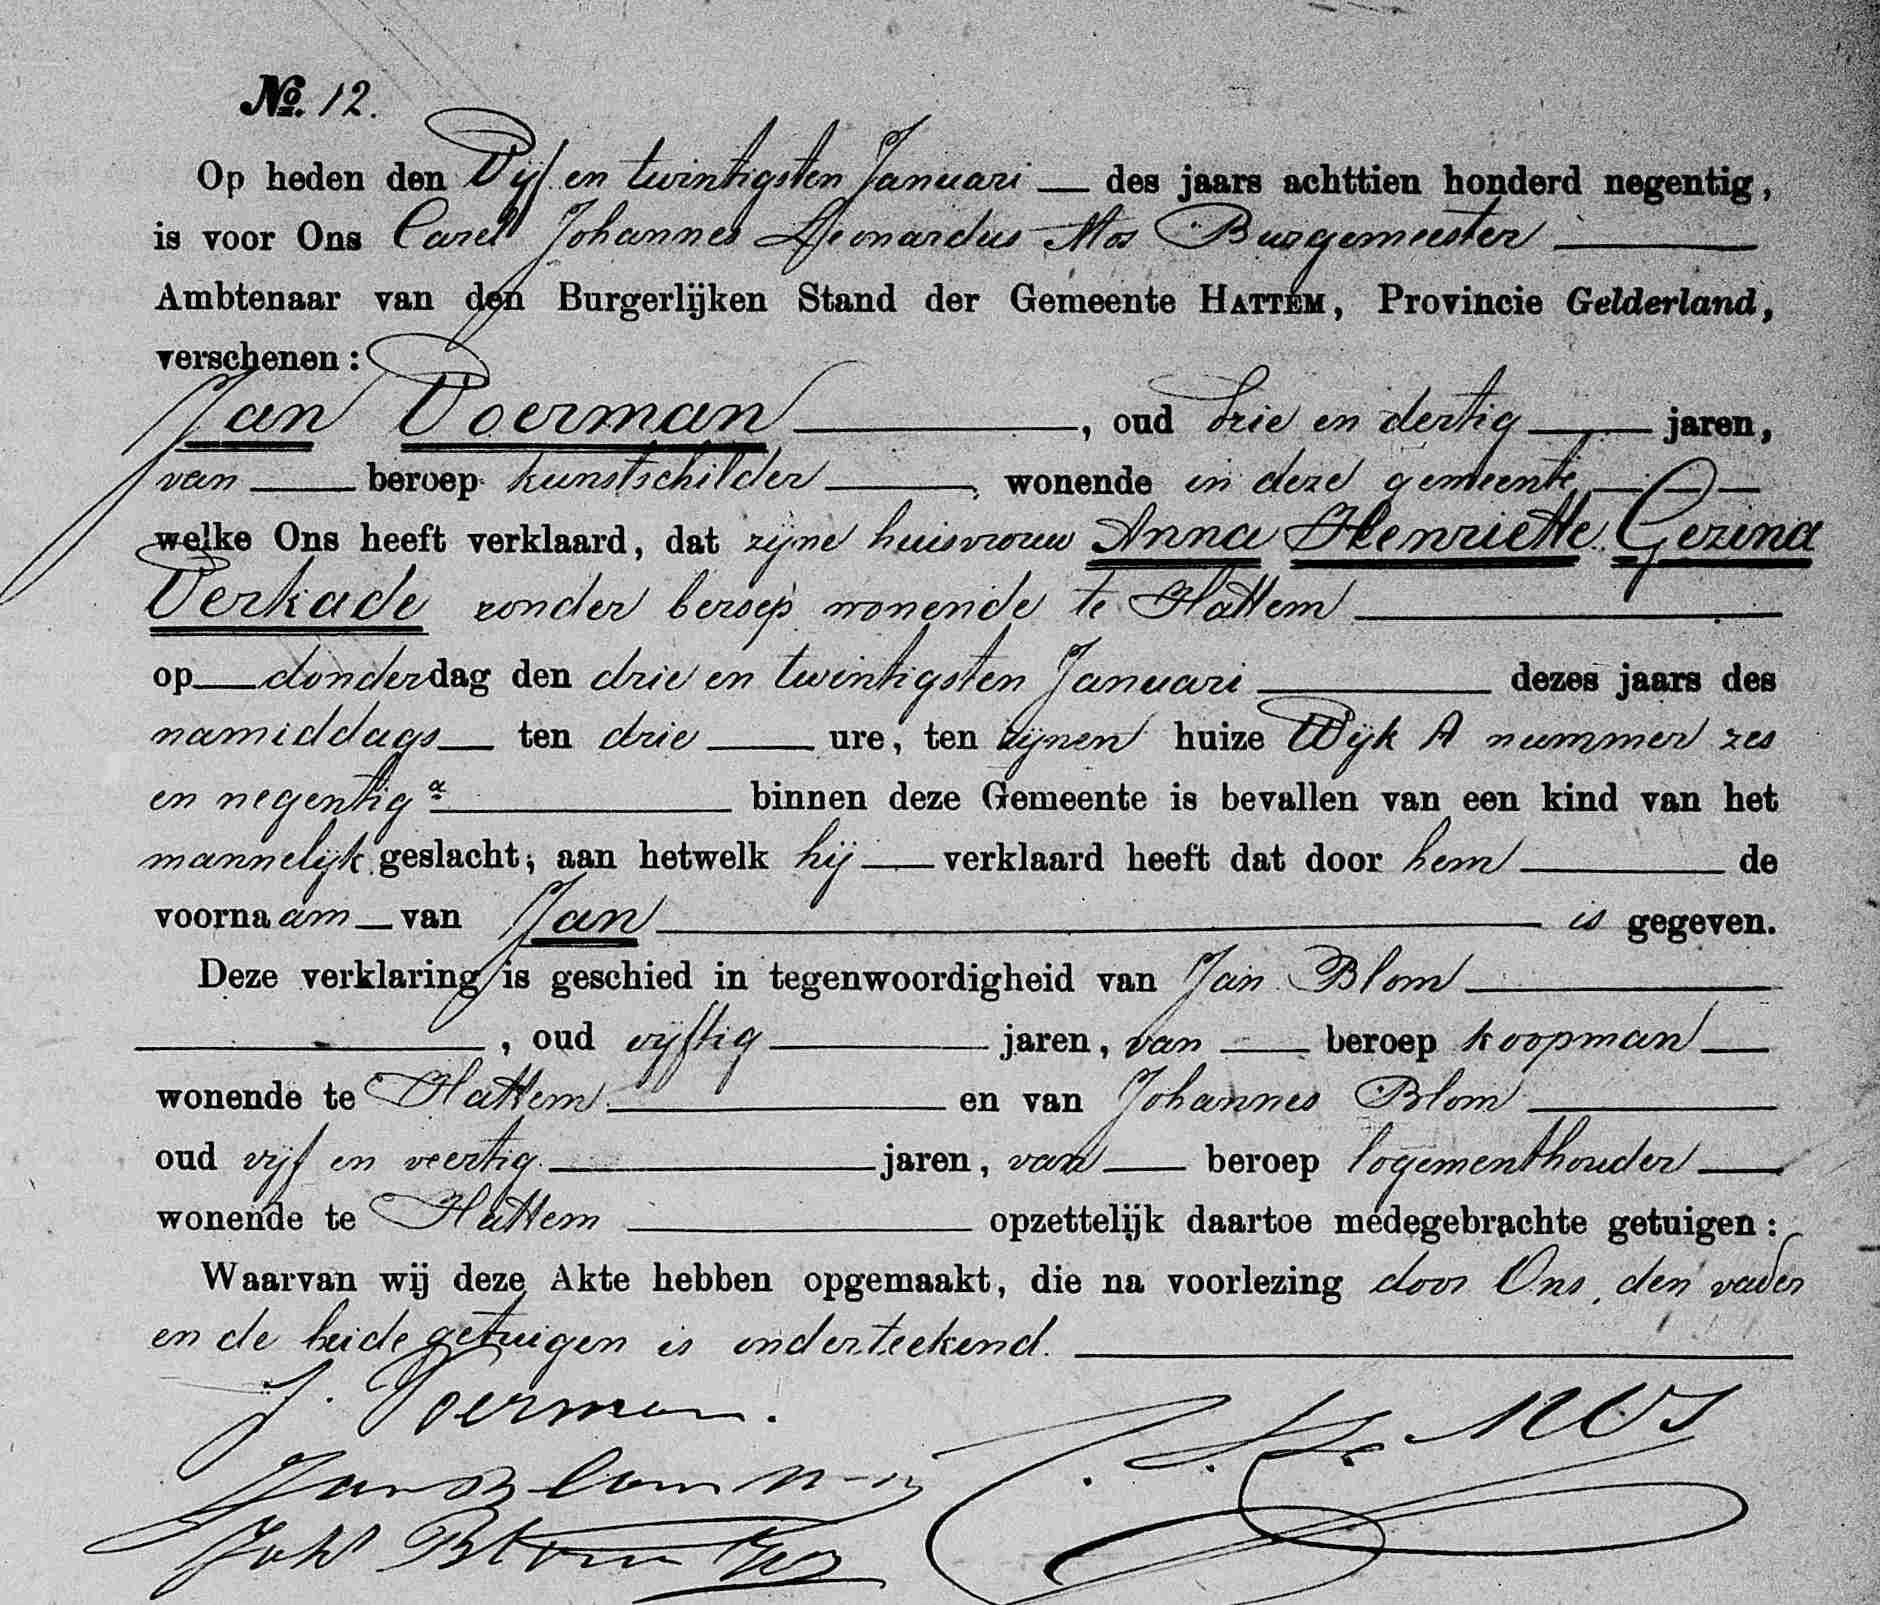 No. 12.
Op heden den Vijf en twintigsten Januari des jaars achttien honderd negentig,
is voor Ons Carel Johannes Leonardus Mos Burgemeester
Ambtenaar van den Burgerlijken Stand der Gemeente HATTEM, Provincie Gelderland,
verschenen:
Jan Voerman, oud drie en dertig jaren,
van beroep kunstschilder, wonende in deze gemeente
welke Ons heeft verklaard, dat zijne huisvrouw Anna Henriette Gezina
Verkade zonder beroep wonende te Hattem
op donderdag den drie en twintigsten Januari dezes jaars des
namiddags ten drie ure, ten zijnen huize Wijk A nummer zes
en negentig a binnen deze Gemeente is bevallen van een kind van het
mannelijk geslacht, aan hetwelk hij verklaard heeft dat door hem de
voornaam van Jan is gegeven.
Deze verklaring is geschied in tegenwoordigheid van Jan Blom
, oud vijftig jaren, van beroep koopman
wonende te Hattem en van Johannes Blom
oud vijf en veertig jaren, van beroep logementhouder
wonende te Hattem opzettelijk daartoe medegebrachte getuigen:
Waarvan wij deze Akte hebben opgemaakt, die na voorlezing door Ons, den vader
en de beide getuigen is onderteekend.
J. Voerman.
Mos
Jan Blom
Joh Blom